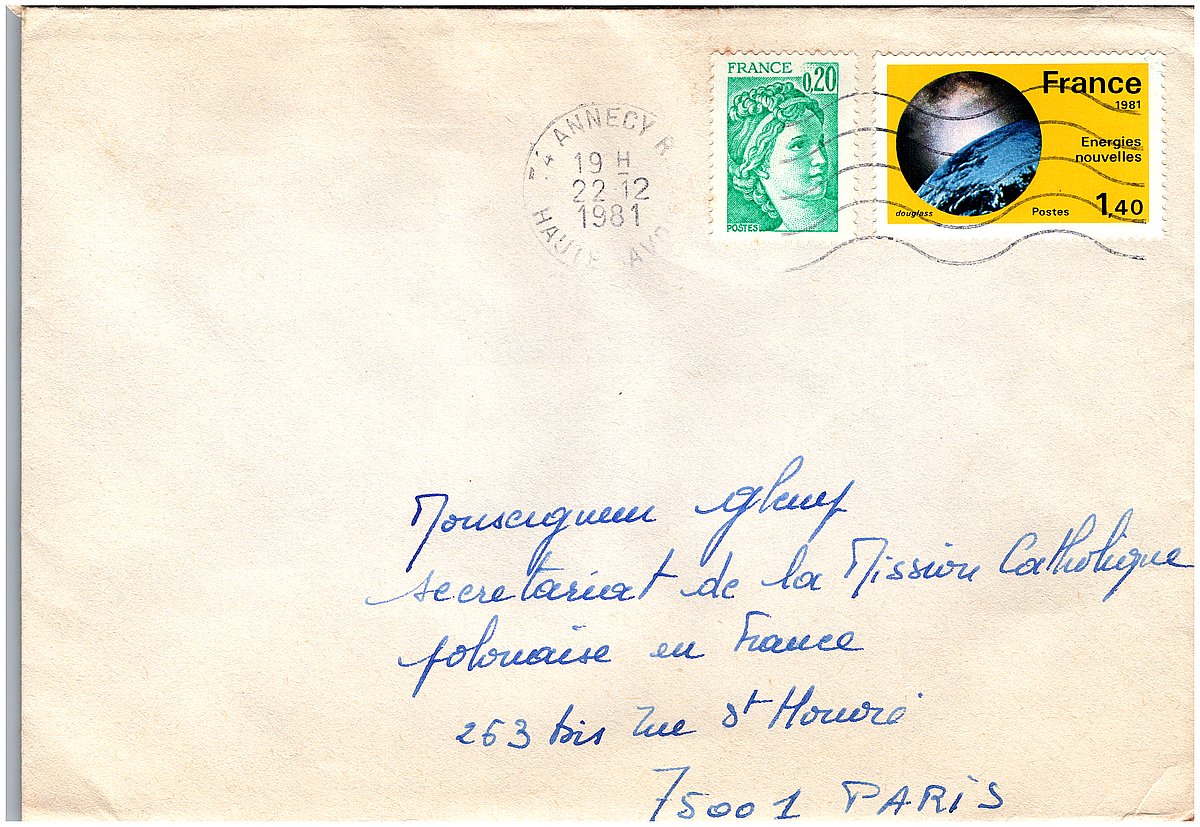 FRANCE
0,20
POSTES
France
1981
Energies
nouvelles
1,40
douglass
Postes
74 ANNECY R.
19 H
22-12
1981
HAUTE
Monseigneur
secretariat de la Mission Catholique
polonaise en France
263 bis rue St Honoré
75001 PARIS